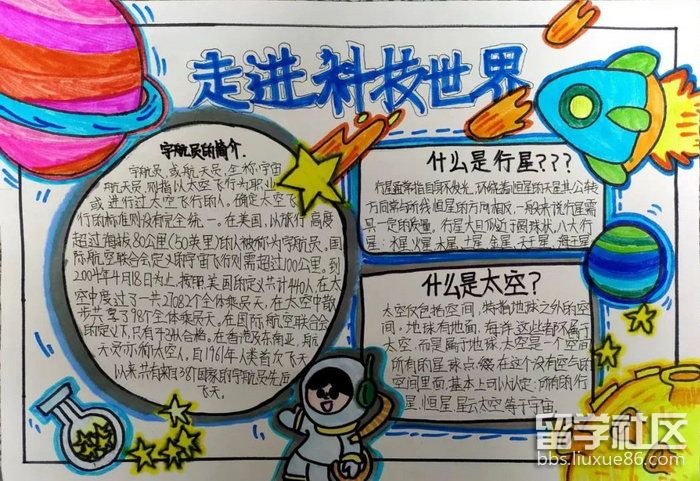 走进科技世界
宇航员的简介.
宇航员,或航天员,全称:宇宙
航天员,则指以太空飞行为职业
或进行过太空飞行的人。确定太空飞
行的标准则没有完全统一。在美国,以旅行高度
超过海拔80公里(50英里)的人被称为宇航员,国
际航空联合会定义的宇宙飞行则需超过100公里。到
2004年4月18日为止,按照美国的定义共计440人在太
空中度过了一共27082个全体乘员天。在太空中散
步共驾了98个全体乘员天。在国际航空联合会
的定义下,只有43人合格。在香港及东南亚,航
天员亦称太空人,自1961年人类首次飞天
以来共有来自国家的宇航员先后
飞天。
什么是行星???
行星通常指自身不发光,环绕着恒星的天星其公转
方向常与所绕恒星的方向相反,一般来说行星需
具一定的质量,行星大且似近于圆球状,八大行
星:水星 火星 木星 土星 金星 天王星 海王星
什么是太空?
太空仅包括空间,特指地球之外的空
间。地球有地面,海洋这些都不属于
太空,而是属于地球.太空是一个空间
所有的星球点缀在这个没有空气的
空间里面.基本上可以认定:所有的行
星、恒星、星云太空等于宇宙
留学社区
bbs.liuxue86.com